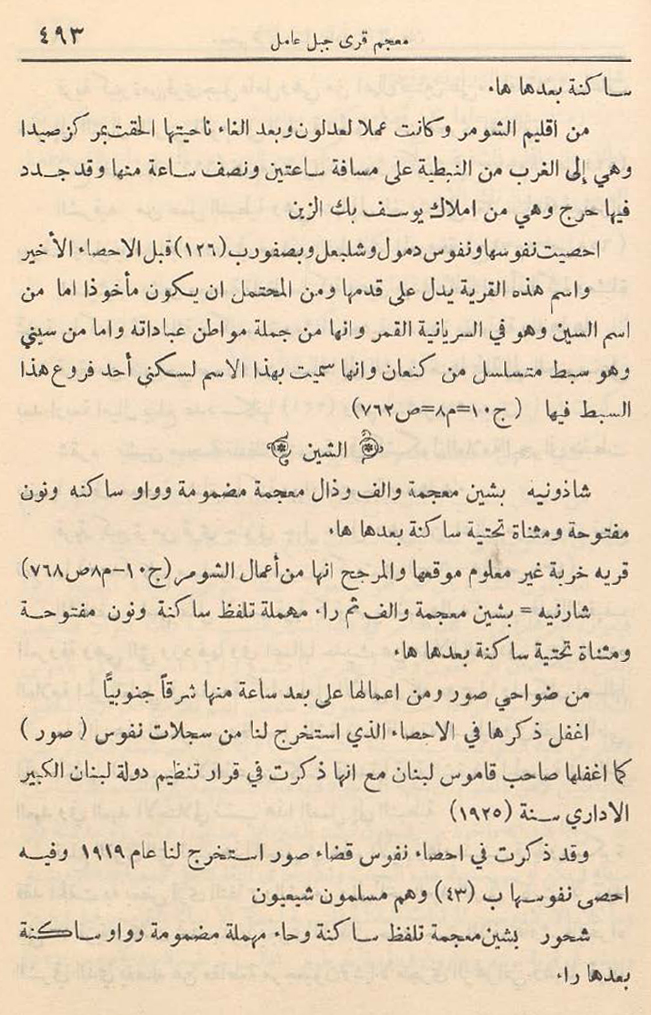 معجم قرى جبل عامل ٤٩٣
ساكنة بعدها هاء
من اقليم الشومر وكانت عملا لعدلون وبعد الغاء ناحيتها الحقت بمركز صيدا
وهي إلى الغرب من النبطية على مسافة ساعتين ونصف ساعة منها وقد جدد
فيها حرج وهي من املاك يوسف بك الزين
احصيت نفوسها ونفوس دمول وشلبعل وبصفورب (١٢٦) قبل الاحصاء الأخير
واسم هذه القرية يدل على قدمها ومن المحتمل ان يكون مأخوذا اما من
اسم السين وهو في السريانية القمر وانها من جملة مواطن عباداته واما من سيني
وهو سبط متسلسل من كنعان وانها سميت بهذا الاسم لسكنى أحد فروع هذا
السبط فيها (ج١٠=م٨=ص٧٦٢)
الشين
شاذونيه بشين معجمة والف وذال معجمة مضمومة وواو ساكنه ونون
مفتوحة ومثناة تحتية ساكنة بعدها هاء.
قريه خربة غير معلوم موقعها والمرجح انها من أعمال الشومر (ج١٠–م٨ص٧٦٨)
شارنيه = بشين معجمة والف ثم راء مهملة تلفظ ساكنة ونون مفتوحة
ومثناة تحتية ساكنة بعدها هاء
من ضواحي صور ومن اعمالها على بعد ساعة منها شرقاً جنوبيًّا
اغفل ذكرها في الاحصاء الذي استخرج لنا من سجلات نفوس (صور)
كما اغفلها صاحب قاموس لبنان مع انها ذكرت في قرار تنظيم دولة لبنان الكبير
الاداري سنة (١٩٢٥)
وقد ذكرت في احصاء نفوس قضاء صور استخرج لنا عام ١٩١٩ وفيه
احصى نفوسها ب (٤٣) وهم مسلمون شيعيون
شحور بشين معجمة تلفظ ساكنة وحاء مهملة مضمومة وواو ساكنة
بعدها راء